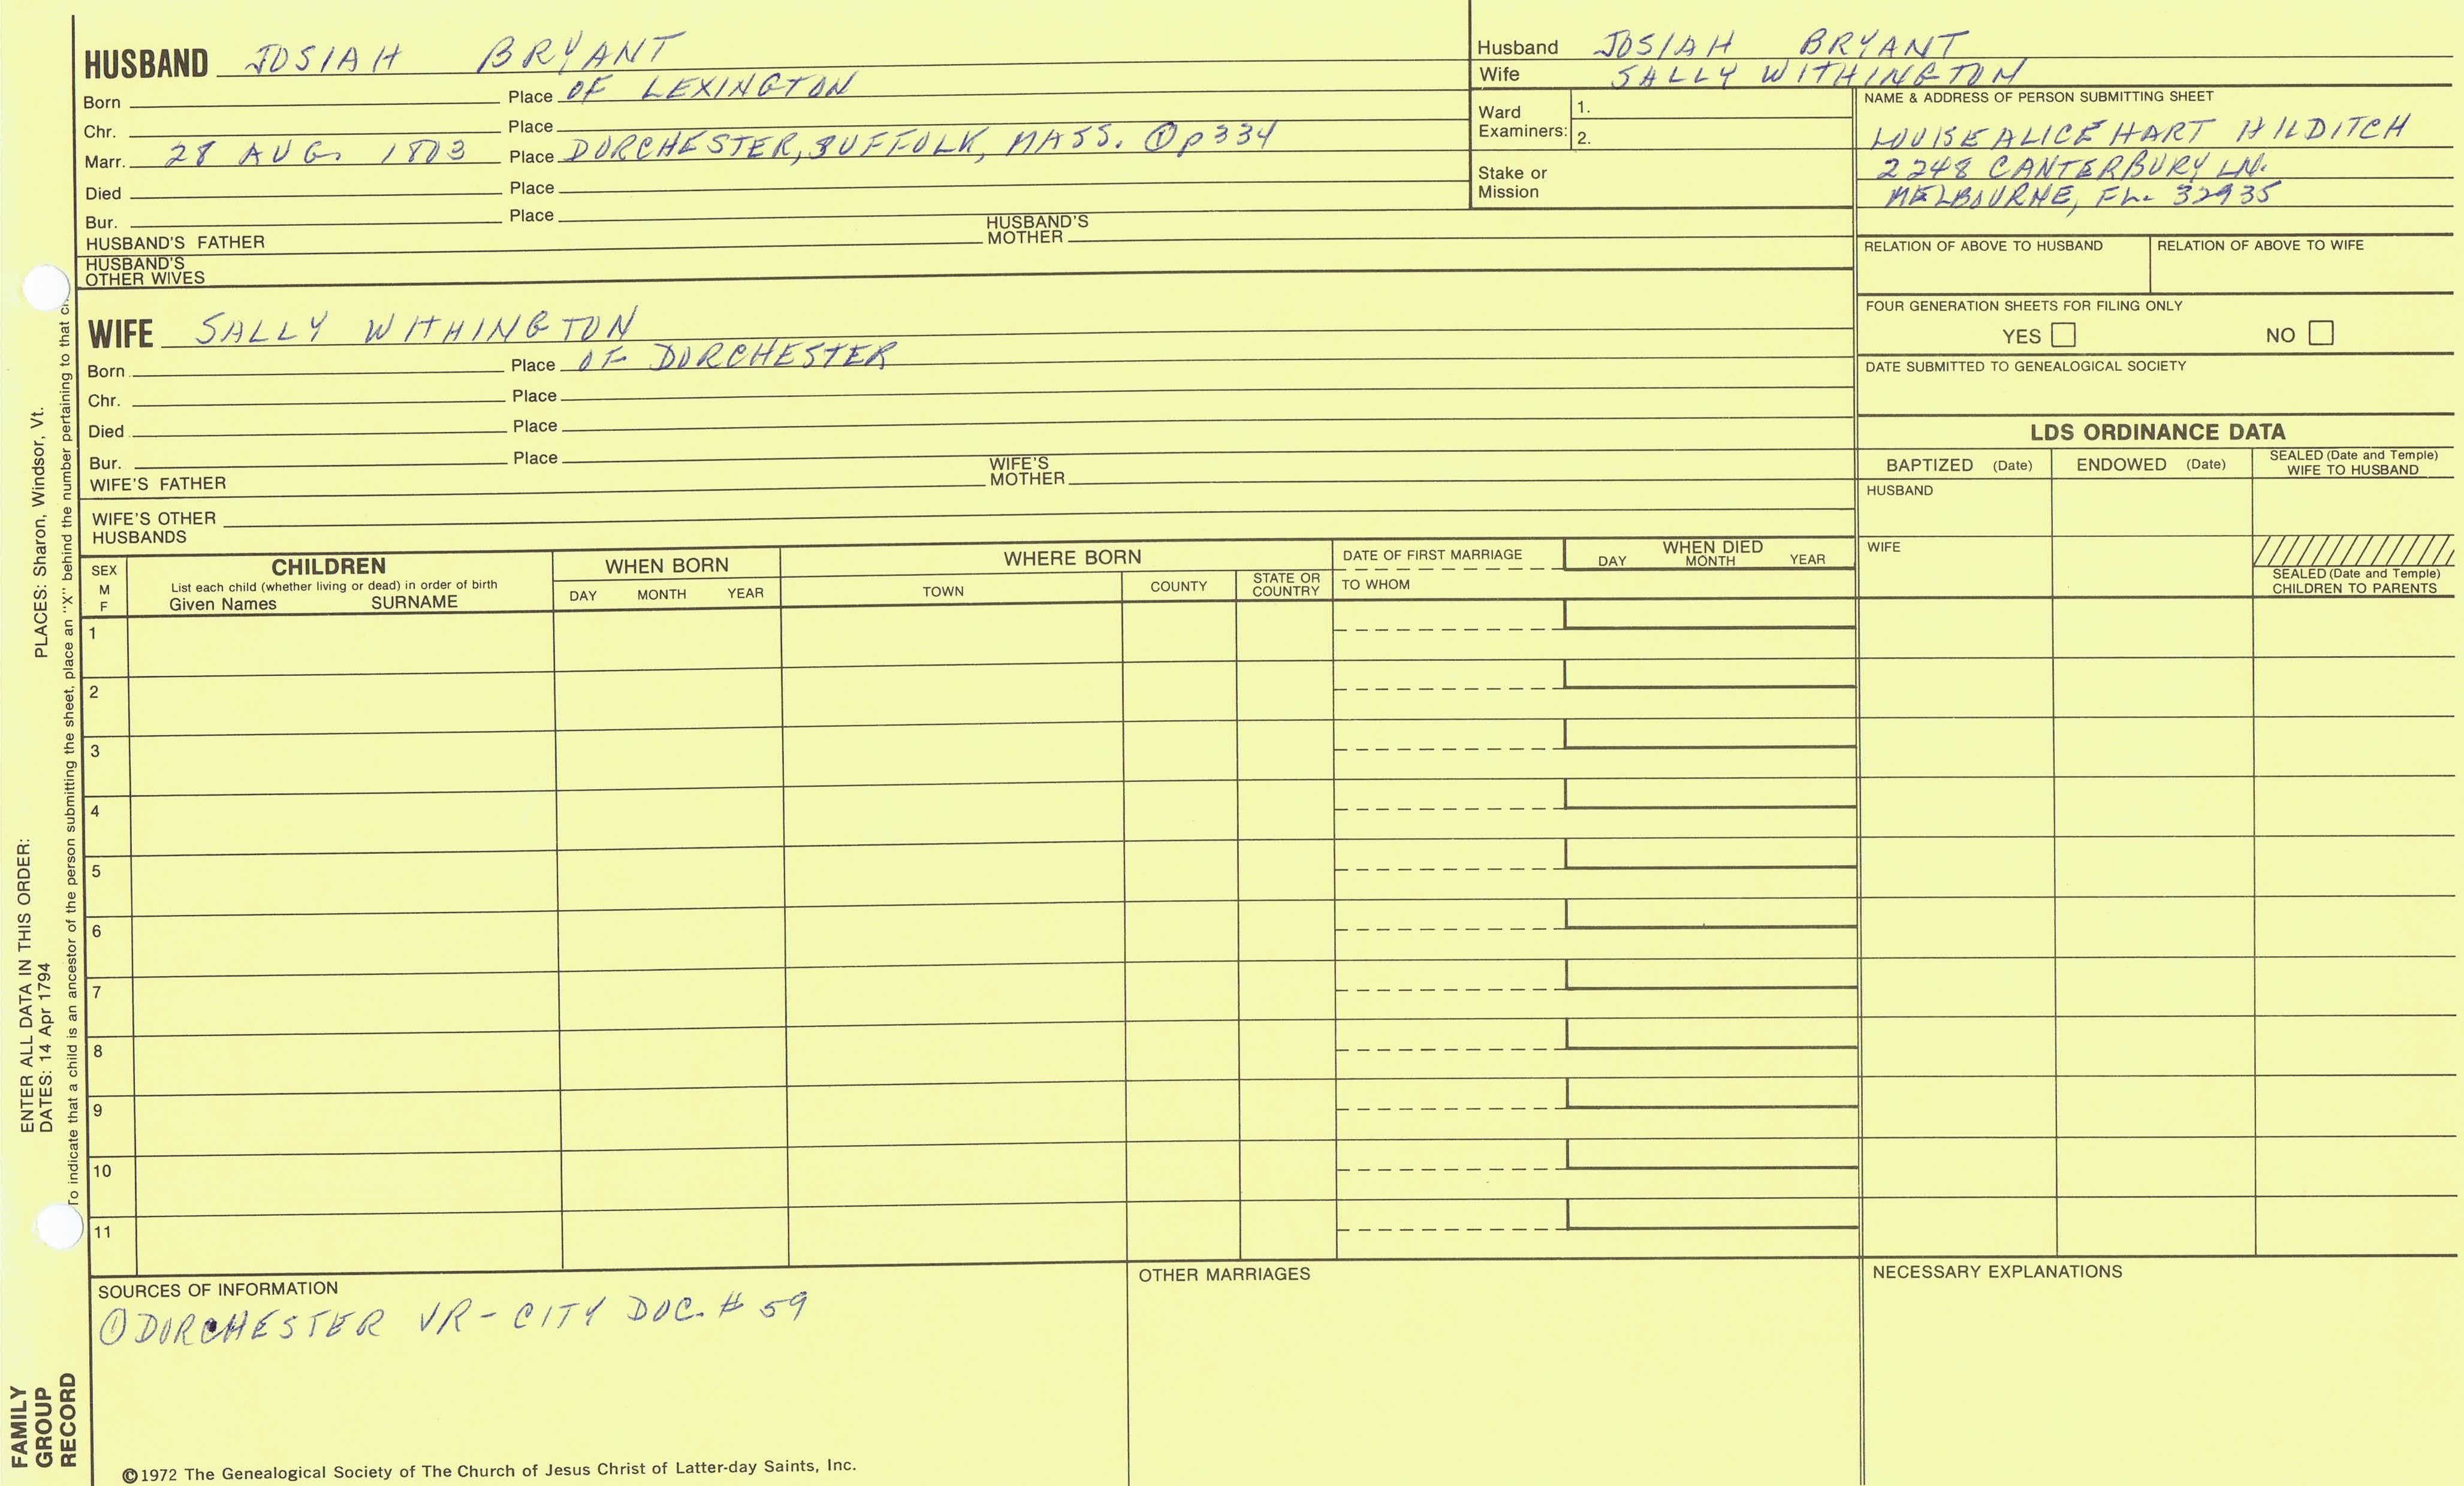 HUSBAND JOSIAH BRYANT
Born Place OF LEXINGTON
Chr. Place
Marr. 28 AUG. 1803 Place DORCHESTER, SUFFOLK, MASS. ① p334
Died Place
Bur. Place
HUSBAND'S FATHER HUSBAND'S MOTHER
HUSBAND'S OTHER WIVES
Husband JOSIAH BRYANT
Wife SALLY WITHINGTON
Ward Examiners: 1.
2.
Stake or Mission
NAME & ADDRESS OF PERSON SUBMITTING SHEET
LOUISE ALICE HART HILDITCH
2248 CANTERBURY LN.
MELBOURNE, FL. 32935
RELATION OF ABOVE TO HUSBAND RELATION OF ABOVE TO WIFE
FOUR GENERATION SHEETS FOR FILING ONLY
YES NO
DATE SUBMITTED TO GENEALOGICAL SOCIETY
WIFE SALLY WITHINGTON
Born Place OF DORCHESTER
Chr. Place
Died Place
Bur. Place
WIFE'S FATHER WIFE'S MOTHER
WIFE'S OTHER HUSBANDS
LDS ORDINANCE DATA
BAPTIZED (Date) ENDOWED (Date) SEALED (Date and Temple) WIFE TO HUSBAND
HUSBAND
WIFE
SEALED (Date and Temple) CHILDREN TO PARENTS
SEX M F
CHILDREN
List each child (whether living or dead) in order of birth
Given Names SURNAME
WHEN BORN
DAY MONTH YEAR
WHERE BORN
TOWN COUNTY STATE OR COUNTRY
DATE OF FIRST MARRIAGE
TO WHOM
WHEN DIED
DAY MONTH YEAR
1
2
3
4
5
6
7
8
9
10
11
SOURCES OF INFORMATION
① DORCHESTER VR - CITY DOC. # 59
OTHER MARRIAGES
NECESSARY EXPLANATIONS
©1972 The Genealogical Society of The Church of Jesus Christ of Latter-day Saints, Inc.
FAMILY GROUP RECORD
ENTER ALL DATA IN THIS ORDER:
DATES: 14 Apr 1794 PLACES: Sharon, Windsor, Vt.
To indicate that a child is an ancestor of the person submitting the sheet, place an "X" behind the number pertaining to that